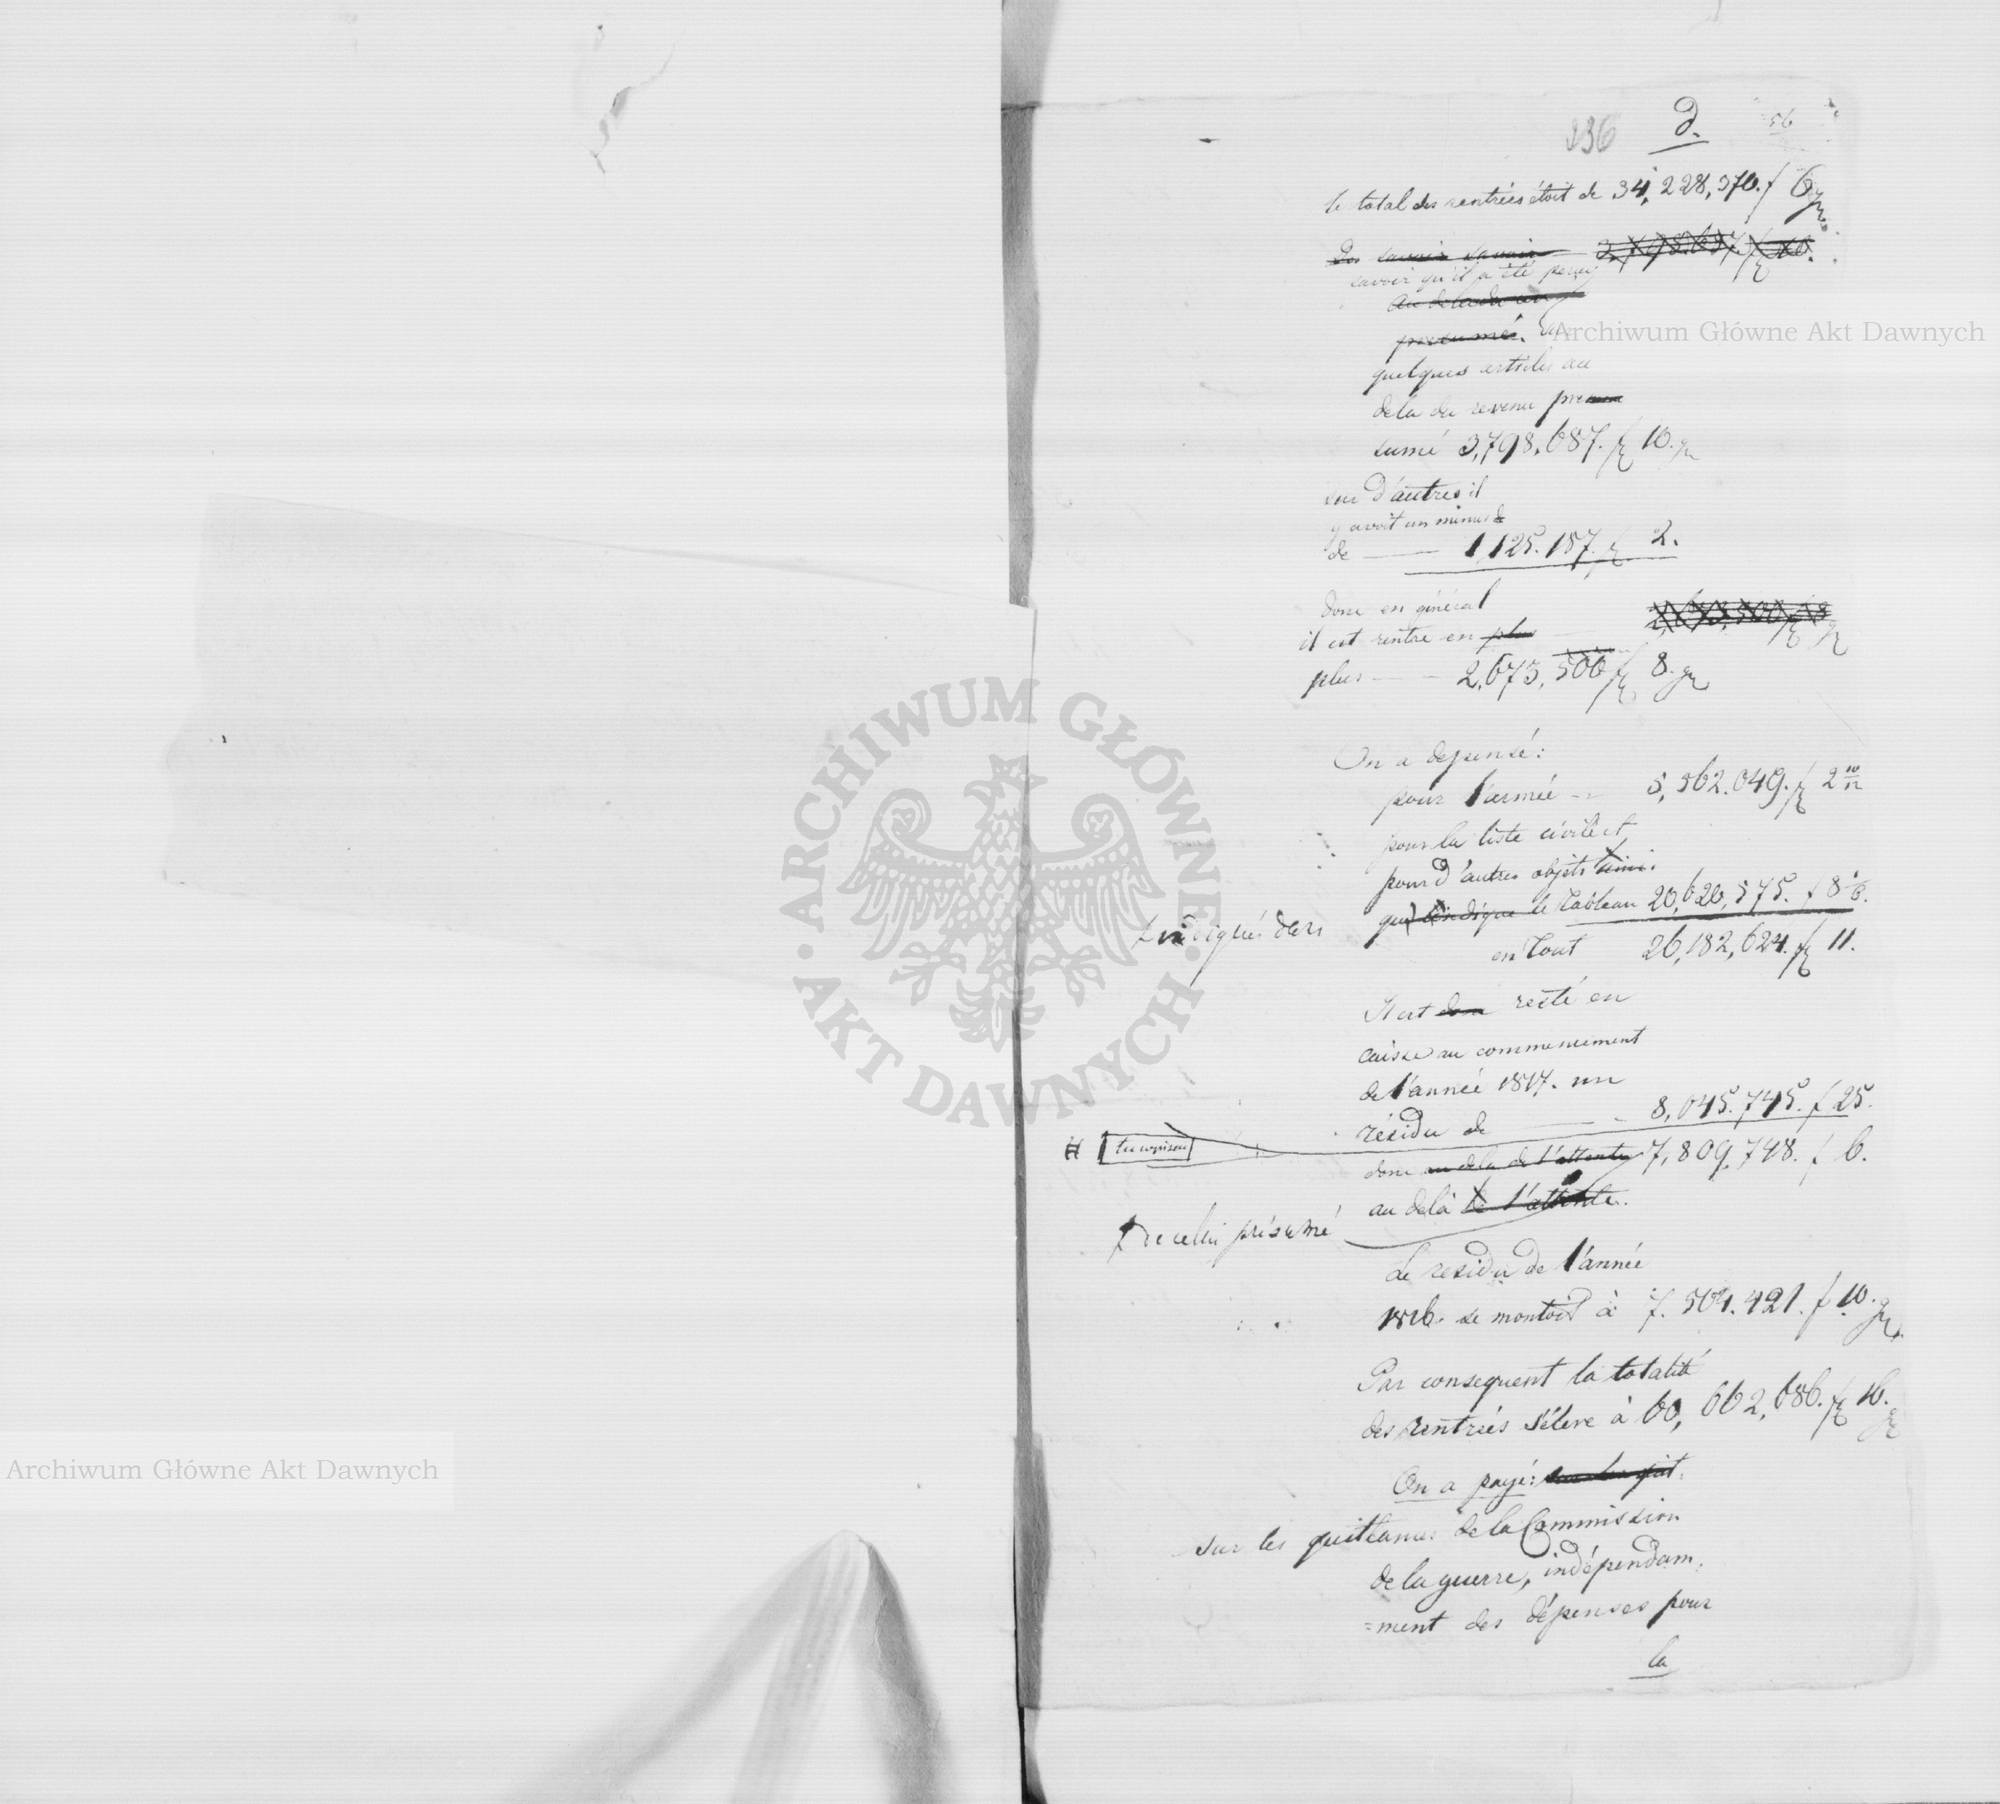 236 d. 56
le total des rentrées étoit de 34,228,370. f 6 gr.
savoir savoir
savoir qu'il a été perçu
au dela du
presumé. sur
quelques articles au
dela du revenu pre
sumé 3,798,687. f 10. gr
sur d'autres il
y avoit un minus
de — 1,125.187. f 2.
donc en général
il est rentré en plus —
plus — - 2,673,500 f 8. gr
On a depensé:
pour l'armée - - 5,562.049. f 2
pour la liste civile et
pour d'autres objets
indiqués dans
qu'indique le tableau 20,620,575. f 8
en tout 26,182,624. f 11.
Il est donc resté en
caisse au commencement
de l'année 1817. un
résidu de — 8,045.745. f 25.
#
donc au dela de l'attente 7,809,748. f 6.
au delà de l'attente.
de celui présumé
Le residu de l'année
1816. se montoit à 7.504.421. f 10. gr
Par consequent la totalité
des rentrées s'éleve à 60,662,686. f 16. gr
On a payé:
sur les quittances de la Commission
de la guerre, indépendam.
=ment des dépenses pour
la
Archiwum Główne Akt Dawnych
ARCHIWUM GŁÓWNE · AKT DAWNYCH ·
Archiwum Główne Akt Dawnych